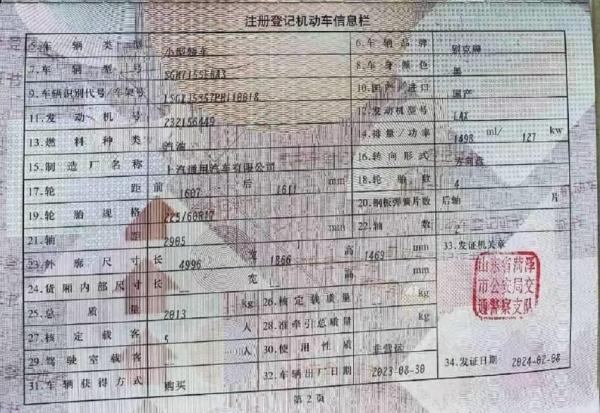 注册登记机动车信息栏
5.车辆类型 小型轿车 6.车辆品牌 别克牌
7.车辆型号 8.车身颜色 黑
9.车辆识别代号/车架号 10.国产/进口 国产
11.发动机号 232156449 12.发动机型号 LAX
13.燃料种类 汽油 14.排量/功率 1498 ml/ 127 kw
15.制造厂名称 上汽通用汽车有限公司 16.转向形式 方向盘
17.轮距 前 1607 后 1611 mm 18.轮胎数 4
19.轮胎规格 225/60R17 20.钢板弹簧片数 后轴 片
21.轴距 2905 mm 22.轴数 2
23.外廓尺寸 长 4996 宽 1866 高 1469 mm 33.发证机关章
24.货厢内部尺寸 长 宽 高 mm
山东省菏泽
市公安局交
通警察支队
25.总质量 2013 kg 26.核定载质量 kg
27.核定载客 5 人 28.准牵引总质量 kg
29.驾驶室载客 人 30.使用性质 非营运
31.车辆获得方式 购买 32.车辆出厂日期 2023-08-30 34.发证日期 2024-02-08
第 2 页